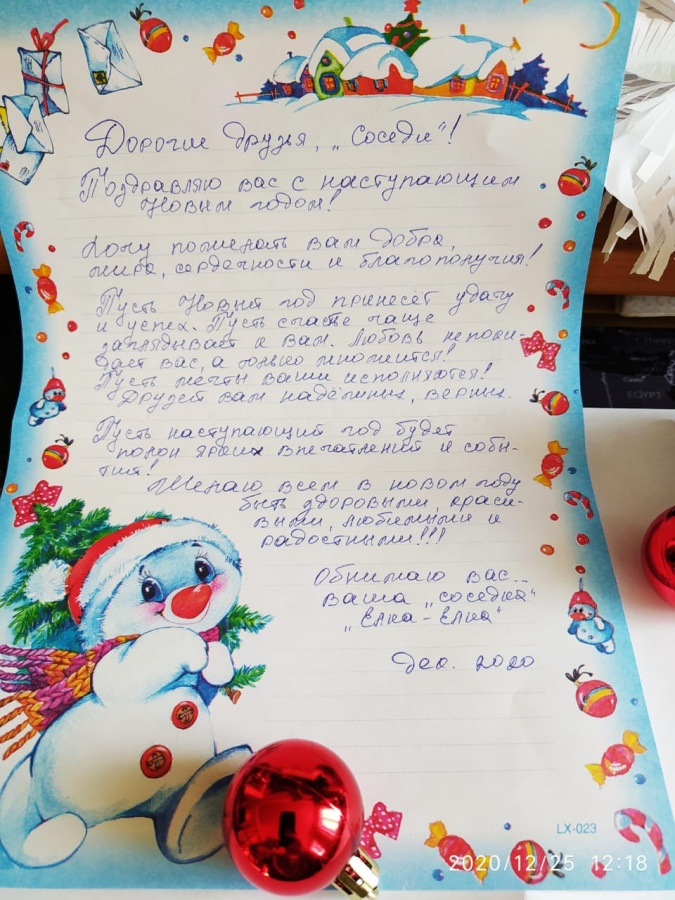 Дорогие друзья, „соседи"!
Поздравляю вас с наступающим
Новым годом!
Хочу пожелать вам добра,
мира, сердечности и благополучия!
Пусть Новый год принесёт удачу
и успех. Пусть счастье чаще
заглядывает к вам. Любовь не поки-
дает вас, а только множится!
Пусть мечты ваши исполняются!
Друзей вам надёжных, верных.
Пусть наступающий год будет
полон ярких впечатлений и собы-
тий!
Желаю всем в новом году
быть здоровыми, краси-
выми, любимыми и
радостными!!!
Обнимаю вас...
Ваша „соседка"
„Елка-Елка"
дек. 2020
EGYPT
LX-023
2020/12/25 12:18